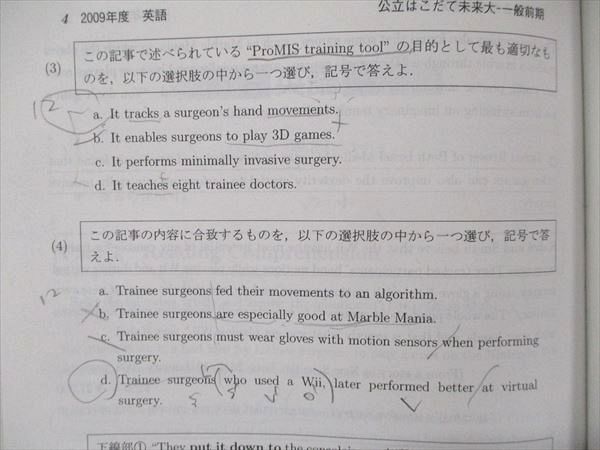 4 2009年度 英語
公立はこだて未来大-一般前期
この記事で述べられている "ProMIS training tool" の目的として最も適切なも
(3)
のを，以下の選択肢の中から一つ選び，記号で答えよ．
12
a. It tracks a surgeon's hand movements.
b. It enables surgeons to play 3D games.
c. It performs minimally invasive surgery.
d. It teaches eight trainee doctors.
この記事の内容に合致するものを，以下の選択肢の中から一つ選び，記号で答
(4)
えよ．
12
a. Trainee surgeons fed their movements to an algorithm.
b. Trainee surgeons are especially good at Marble Mania.
c. Trainee surgeons must wear gloves with motion sensors when performing
surgery.
d. Trainee surgeons who used a Wii, later performed better at virtual
surgery.
S S S O V
下線部① "They put it down to the